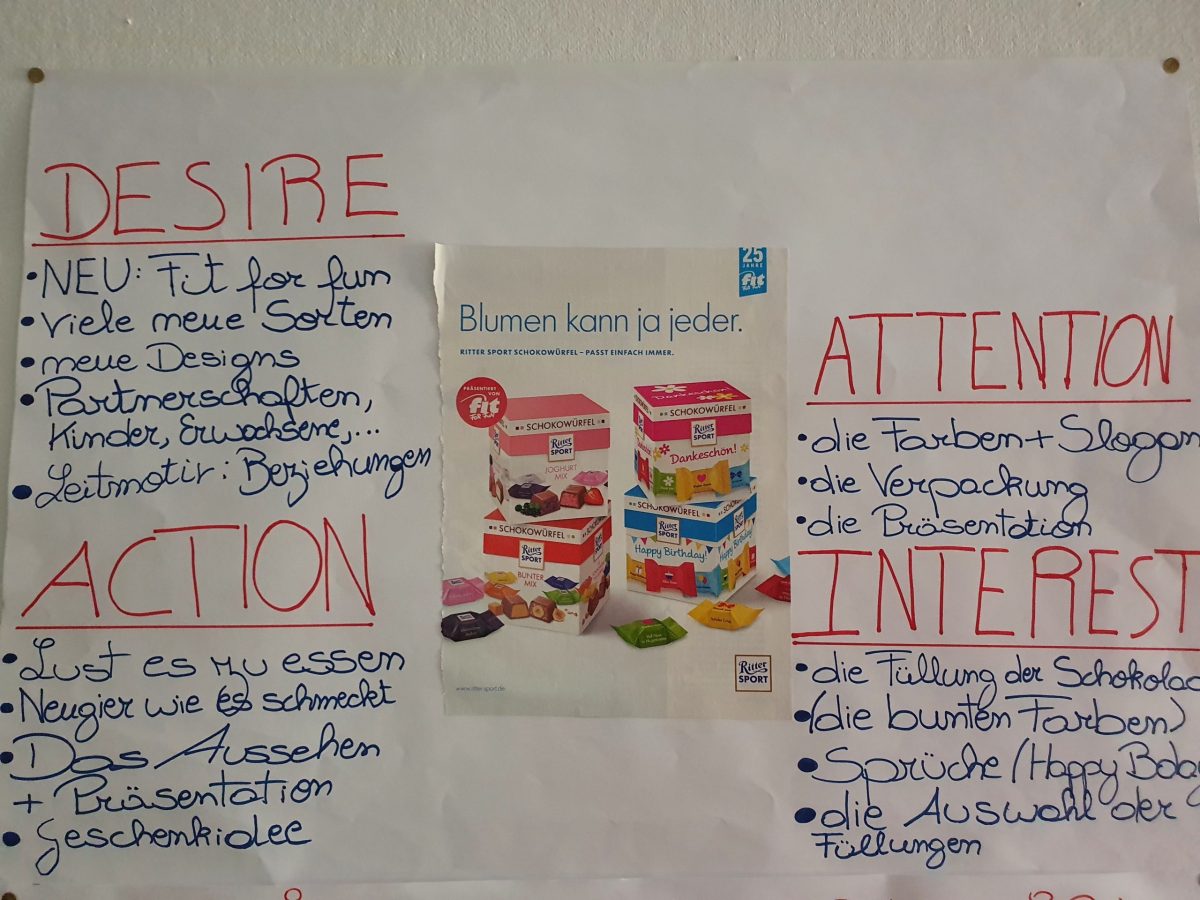 DESIRE
• NEU: Fit for fun
• viele neue Sorten
• neue Designs
• Partnerschaften,
Kinder, Erwachsene,...
• Leitmotiv: Beziehungen
ACTION
• Lust es zu essen
• Neugier wie es schmeckt
• Das Aussehen
+ Präsentation
• Geschenkidee
25
JAHRE
fit
FOR FUN
Blumen kann ja jeder.
RITTER SPORT SCHOKOWÜRFEL – PASST EINFACH IMMER.
PRÄSENTIERT
VON
fit
FOR FUN
SCHOKOWÜRFEL
Ritter
SPORT
JOGHURT
MIX
Dankeschön!
SCHOKOWÜRFEL
Ritter
SPORT
Dankeschön!
SCHOKOWÜRFEL
Ritter
SPORT
BUNTER
MIX
SCHOKOWÜRFEL
Ritter
SPORT
Happy Birthday!
Happy Birthday!
Ritter
SPORT
www.ritter-sport.de
ATTENTION
• die Farben + Slogan
• die Verpackung
• die Präsentation
INTEREST
• die Füllung der Schokolad
• (die bunten Farben)
• Sprüche (Happy Bday
• die Auswahl der
Füllungen